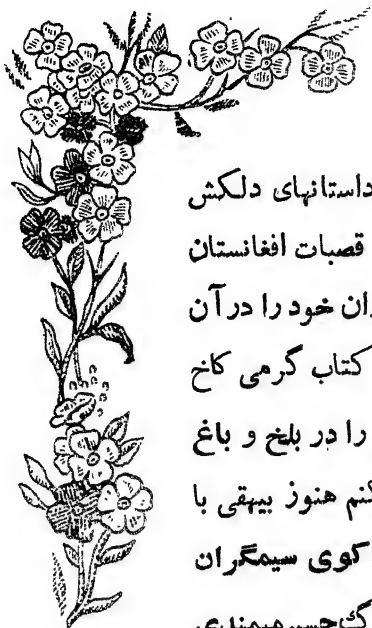 داستانهای دلکش
قصبات افغانستان
ان خود را در آن
کتاب گرمی کاخ
را در بلخ و باغ
کنم هنوز بیهقی با
کوی سیمگران
حسن میمندی